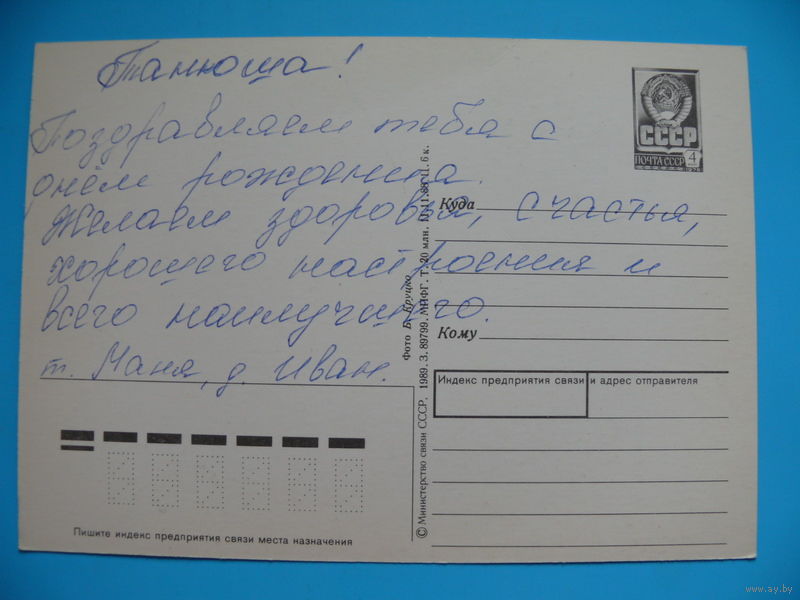 Танюша!
Поздравляем тебя с
днём рождения.
Желаем здоровья, счастья,
хорошего настроения и
всего наилучшего.
т. Маня, д. Иван.
СССР
ПОЧТА СССР
4
Куда
Кому
Индекс предприятия связи и адрес отправителя
Пишите индекс предприятия связи места назначения
© Министерство связи СССР. 1989. З. 89799. МПФГ. Т. 20 млн. 11.11.88. Ц. 6 к.
Фото Б. Круцко
www.ay.by